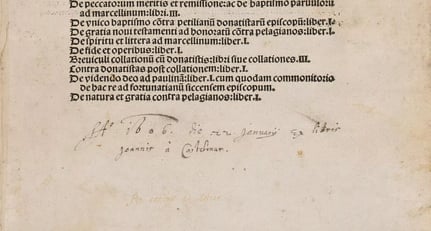 De peccatorum meritis et remissione: ac de baptismo paruulorū
ad marcellinum: libri.III.
De vnico baptismo cōtra petilianū donatistarū episcopū: liber.I.
De gratia noui testamenti ad honoratū cōtra pelagianos: liber.I.
De spiritu et littera ad marcellinum: liber.I.
De fide et operibus: liber.I.
Breuiculi collationū cū donatistis: libri siue collationes.III.
Contra donatistas post collationem: liber.I.
De videndo deo ad paulinā: liber.I. cum quodam commonitorio
de hac re ad fortunatianū siccensem episcopum.
De natura et gratia contra pelagianos: liber.I.
1606. die 22 Januarij Ex libris
Joannis à